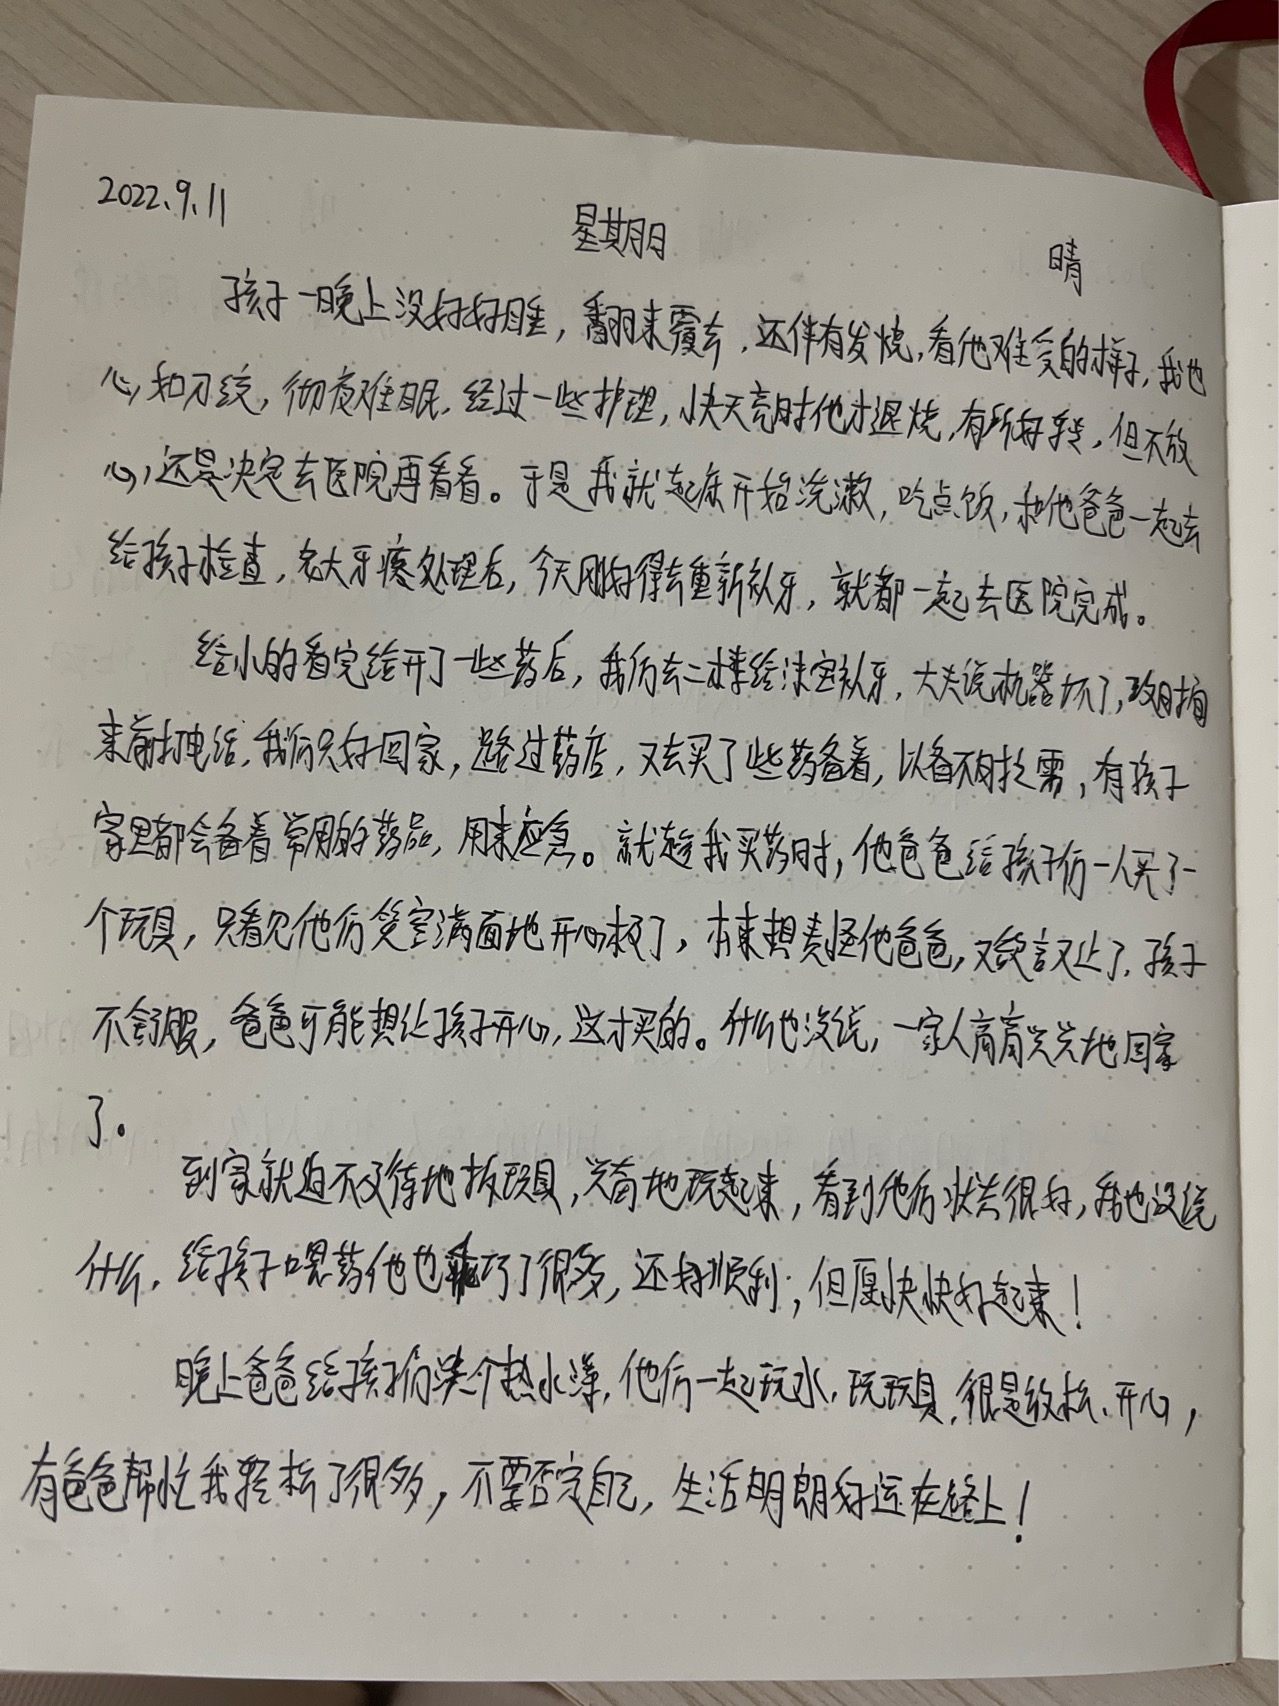 2022.9.11 星期日 晴
孩子一晚上没好好睡，翻来覆去，还伴有发烧，看他难受的样子，我也
心如刀绞，彻夜难眠，经过一些护理，快天亮时他才退烧，有所好转，但不放
心，还是决定去医院再看看。于是我就起床开始洗漱，吃点饭，和他爸爸一起去
给孩子检查，老大牙疼处理后，今天刚好得去重新补牙，就都一起去医院完成。
给小的看完给开了一些药后，我们去二楼给沫宝补牙，大夫说机器坏了，改日
来前打电话，我们只好回家，路过药店，又去买了些药备着，以备不时之需，有孩子
家里都会备着常用的药品，用来应急。就趁我买药时，他爸爸给孩子们一人买了一
个玩具，只看见他们笑容满面地开心极了，本来想责怪他爸爸，又欲言又止了，孩子
不舒服，爸爸可能想让孩子开心，这才买的。什么也没说，一家人高高兴兴地回家
了。
到家就迫不及待地拆玩具，兴奋地玩起来，看到他们状态很好，我也没说
什么，给孩子喂药他也乖巧了很多，还好顺利；但愿快快好起来！
晚上爸爸给孩子们洗个热水澡，他们一起玩水，玩玩具，很是放松、开心，
有爸爸帮忙我轻松了很多，不要否定自己，生活明朗好运在路上！